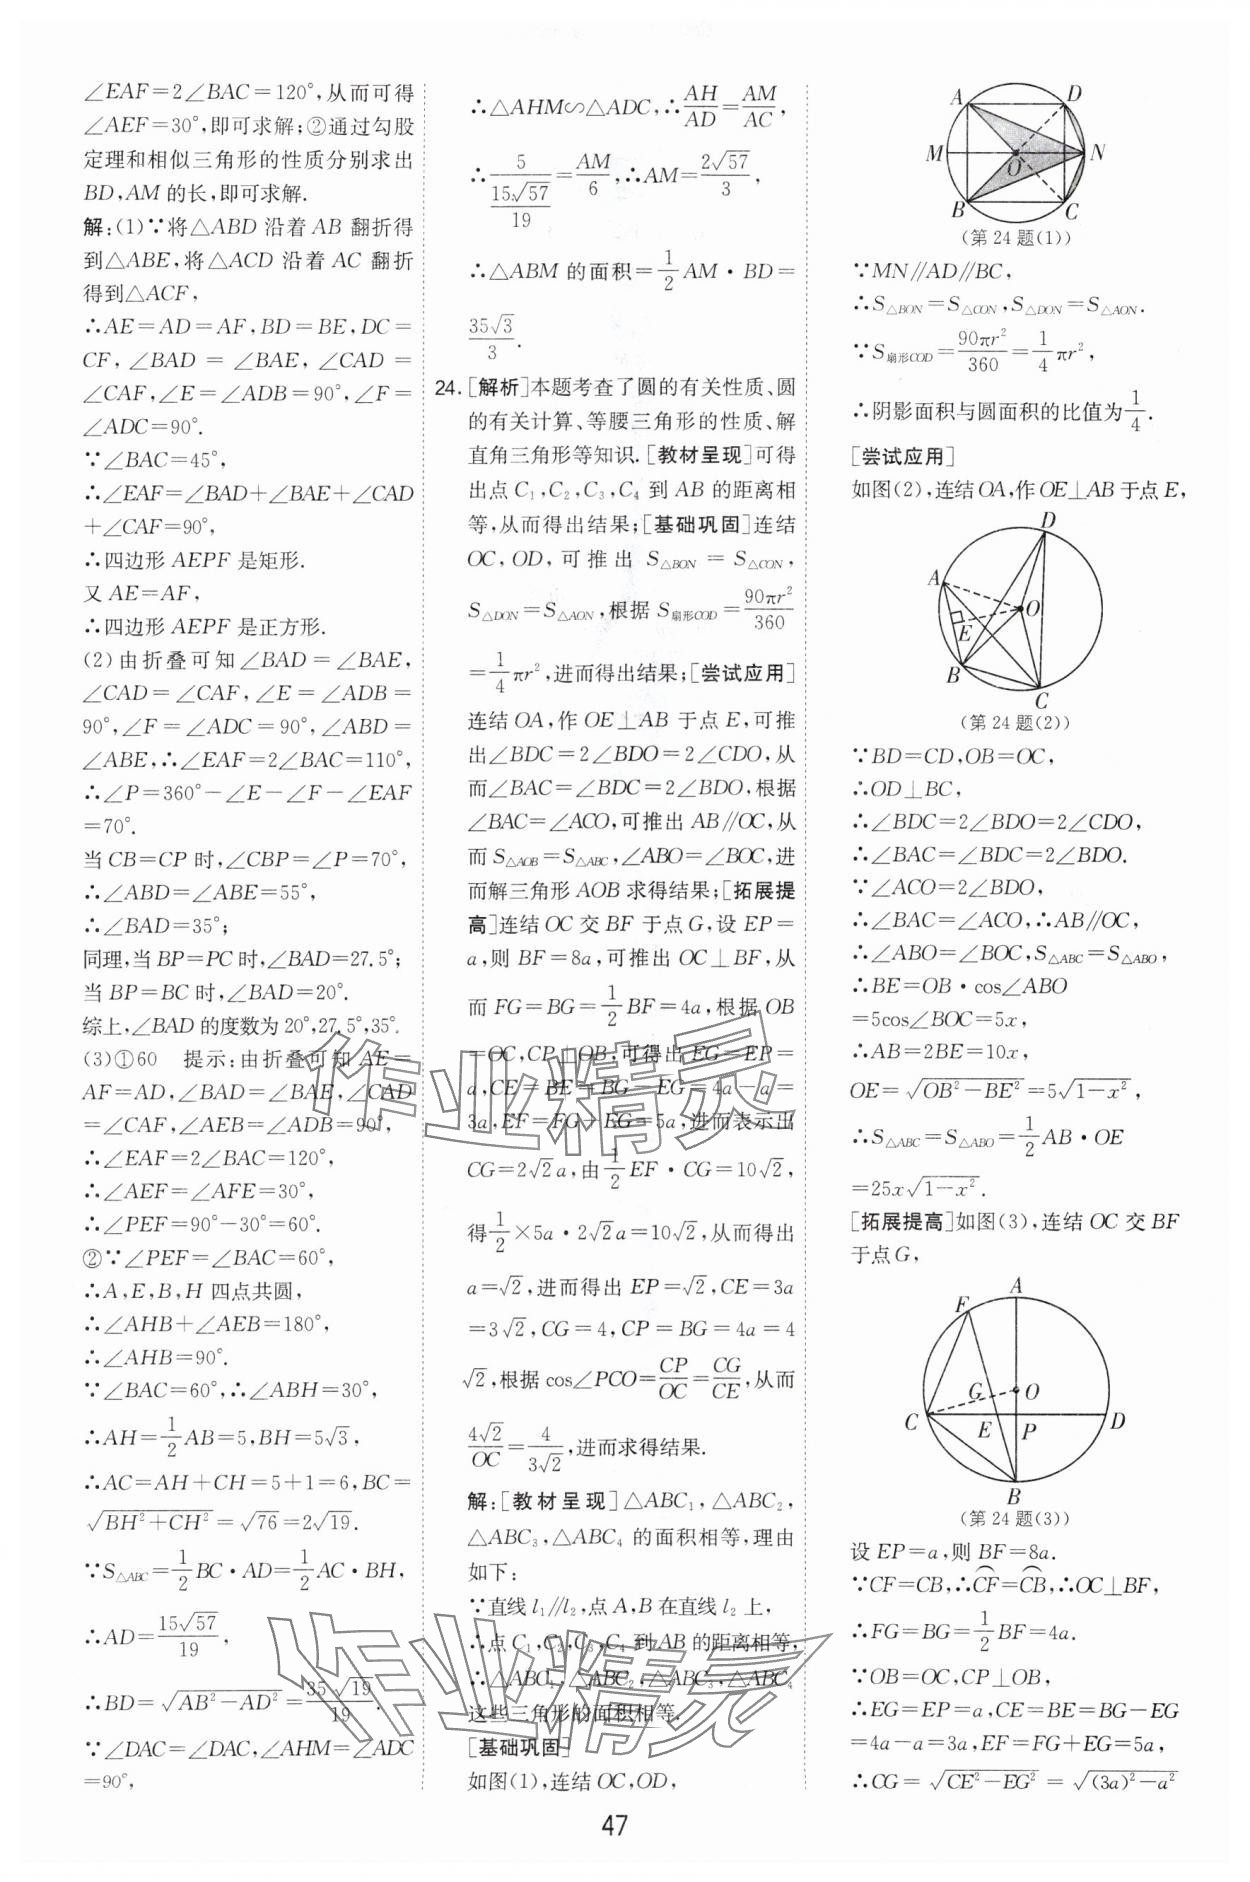 ∠EAF=2∠BAC=120°,从而可得
∠AEF=30°,即可求解;②通过勾股
定理和相似三角形的性质分别求出
BD,AM 的长,即可求解.
解:(1)∵将△ABD 沿着 AB 翻折得
到△ABE,将△ACD 沿着 AC 翻折
得到△ACF,
∴AE=AD=AF,BD=BE,DC=
CF,∠BAD=∠BAE,∠CAD=
∠CAF,∠E=∠ADB=90°,∠F=
∠ADC=90°.
∵∠BAC=45°,
∴∠EAF=∠BAD+∠BAE+∠CAD
+∠CAF=90°,
∴四边形 AEPF 是矩形.
又 AE=AF,
∴四边形 AEPF 是正方形.
(2)由折叠可知∠BAD=∠BAE,
∠CAD=∠CAF,∠E=∠ADB=
90°,∠F=∠ADC=90°,∠ABD=
∠ABE,∴∠EAF=2∠BAC=110°,
∴∠P=360°-∠E-∠F-∠EAF
=70°.
当 CB=CP 时,∠CBP=∠P=70°,
∴∠ABD=∠ABE=55°,
∴∠BAD=35°;
同理,当 BP=PC 时,∠BAD=27.5°;
当 BP=BC 时,∠BAD=20°.
综上,∠BAD 的度数为 20°,27.5°,35°.
(3)①60 提示:由折叠可知 AE=
AF=AD,∠BAD=∠BAE,∠CAD
=∠CAF,∠AEB=∠ADB=90°,
∴∠EAF=2∠BAC=120°,
∴∠AEF=∠AFE=30°,
∴∠PEF=90°-30°=60°.
②∵∠PEF=∠BAC=60°,
∴A,E,B,H 四点共圆,
∴∠AHB+∠AEB=180°,
∴∠AHB=90°.
∵∠BAC=60°,∴∠ABH=30°,
∴AH=1/2AB=5,BH=5√3,
∴AC=AH+CH=5+1=6,BC=
√(BH²+CH²)=√76=2√19.
∵S△ABC=1/2BC·AD=1/2AC·BH,
∴AD=15√57/19,
∴BD=√(AB²-AD²)=35√19/19.
∵∠DAC=∠DAC,∠AHM=∠ADC
=90°,
∴△AHM∽△ADC,∴AH/AD=AM/AC,
∴5/(15√57/19)=AM/6,∴AM=2√57/3,
∴△ABM 的面积=1/2AM·BD=
35√3/3.
24.[解析]本题考查了圆的有关性质、圆
的有关计算、等腰三角形的性质、解
直角三角形等知识.[教材呈现]可得
出点 C₁,C₂,C₃,C₄ 到 AB 的距离相
等,从而得出结果;[基础巩固]连结
OC,OD,可推出 S△BON=S△CON,
S△DON=S△AON,根据 S扇形COD=90πr²/360
=1/4πr²,进而得出结果;[尝试应用]
连结 OA,作 OE⊥AB 于点 E,可推
出∠BDC=2∠BDO=2∠CDO,从
而∠BAC=∠BDC=2∠BDO,根据
∠BAC=∠ACO,可推出 AB∥OC,从
而 S△AOB=S△ABC,∠ABO=∠BOC,进
而解三角形 AOB 求得结果;[拓展提
高]连结 OC 交 BF 于点 G,设 EP=
a,则 BF=8a,可推出 OC⊥BF,从
而 FG=BG=1/2BF=4a,根据 OB
=OC,CP⊥OB,可得出 EG=EP=
a,CE=BE=BG-EG=4a-a=
3a,EF=FG+EG=5a,进而表示出
CG=2√2a,由1/2EF·CG=10√2,
得1/2×5a·2√2a=10√2,从而得出
a=√2,进而得出 EP=√2,CE=3a
=3√2,CG=4,CP=BG=4a=4
√2,根据 cos∠PCO=CP/OC=CG/CE,从而
4√2/OC=4/3√2,进而求得结果.
解:[教材呈现]△ABC₁,△ABC₂,
△ABC₃,△ABC₄ 的面积相等,理由
如下:
∵直线 l₁∥l₂,点 A,B 在直线 l₂ 上,
∴点 C₁,C₂,C₃,C₄ 到 AB 的距离相等,
∴△ABC₁,△ABC₂,△ABC₃,△ABC₄
这些三角形的面积相等.
[基础巩固]
如图(1),连结 OC,OD,
A
D
M
O
N
B
C
(第 24 题(1))
∵MN∥AD∥BC,
∴S△BON=S△CON,S△DON=S△AON.
∵S扇形COD=90πr²/360=1/4πr²,
∴阴影面积与圆面积的比值为1/4.
[尝试应用]
如图(2),连结 OA,作 OE⊥AB 于点 E,
D
A
O
E
B
C
(第 24 题(2))
∵BD=CD,OB=OC,
∴OD⊥BC,
∴∠BDC=2∠BDO=2∠CDO,
∴∠BAC=∠BDC=2∠BDO.
∵∠ACO=2∠BDO,
∴∠BAC=∠ACO,∴AB∥OC,
∴∠ABO=∠BOC,S△ABC=S△ABO,
∴BE=OB·cos∠ABO
=5cos∠BOC=5x,
∴AB=2BE=10x,
OE=√(OB²-BE²)=5√(1-x²),
∴S△ABC=S△ABO=1/2AB·OE
=25x√(1-x²).
[拓展提高]如图(3),连结 OC 交 BF
于点 G,
A
F
G
O
C
E
P
D
B
(第 24 题(3))
设 EP=a,则 BF=8a.
∵CF=CB,∴⌒CF=⌒CB,∴OC⊥BF,
∴FG=BG=1/2BF=4a.
∵OB=OC,CP⊥OB,
∴EG=EP=a,CE=BE=BG-EG
=4a-a=3a,EF=FG+EG=5a,
∴CG=√(CE²-EG²)=√((3a)²-a²)
作业精灵
作业精灵
47